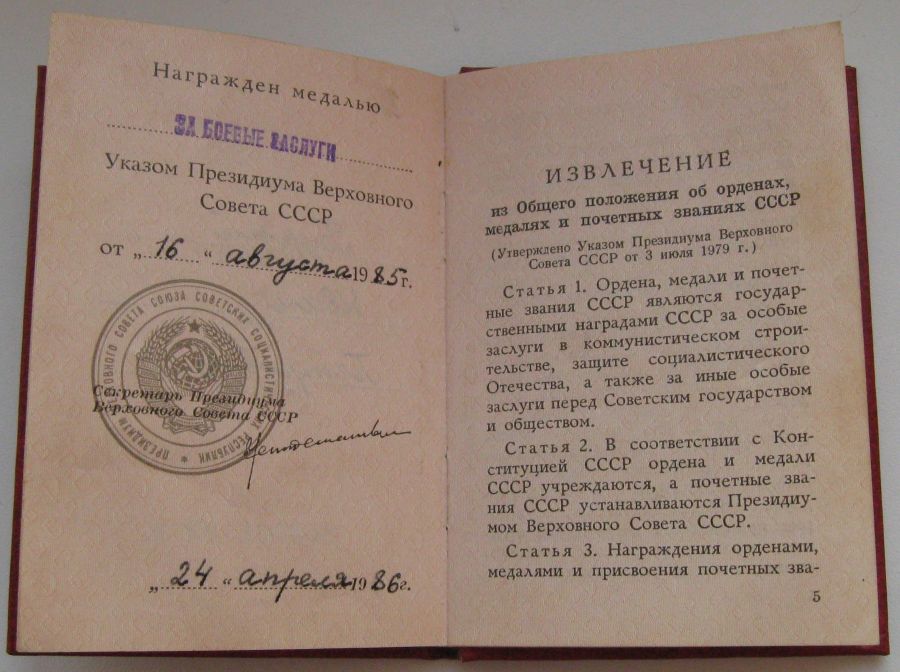 Награжден медалью
ЗА БОЕВЫЕ ЗАСЛУГИ
Указом Президиума Верховного
Совета СССР
от „ 16 “ августа 1985г.
ПРЕЗИДИУМ ВЕРХОВНОГО СОВЕТА СОЮЗА СОВЕТСКИХ СОЦИАЛИСТИЧЕСКИХ РЕСПУБЛИК
Секретарь Президиума
Верховного Совета СССР
„ 24 “ апреля 1986г.
ИЗВЛЕЧЕНИЕ
из Общего положения об орденах,
медалях и почетных званиях СССР
(Утверждено Указом Президиума Верховного
Совета СССР от 3 июля 1979 г.)
Статья 1. Ордена, медали и почет-
ные звания СССР являются государ-
ственными наградами СССР за особые
заслуги в коммунистическом строи-
тельстве, защите социалистического
Отечества, а также за иные особые
заслуги перед Советским государством
и обществом.
Статья 2. В соответствии с Кон-
ституцией СССР ордена и медали
СССР учреждаются, а почетные зва-
ния СССР устанавливаются Президиу-
мом Верховного Совета СССР.
Статья 3. Награждения орденами,
медалями и присвоения почетных зва-
5